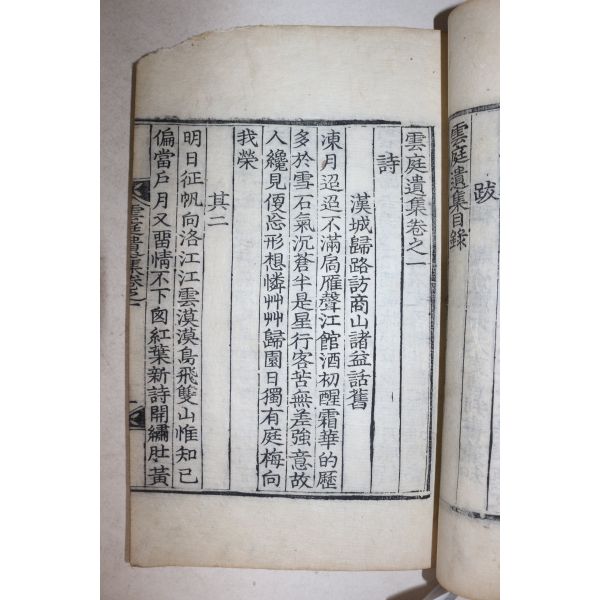 跋
雲庭遺集目錄
雲庭遺集卷之一
詩
漢城歸路訪商山諸益話舊
凍月迢迢不滿局雁聲江館酒初醒霜華的歷
多於雪石氣沉蒼半是星行客苦無差強意故
人纔見便忘形想憐艸艸歸園日獨有庭梅向
我榮
其二
明日征帆向洛江江雲漠漠鳥飛雙山惟知已
偏當戶月又畱情不下囪紅葉新詩開繡肚黃
雲庭遺集卷之一
一